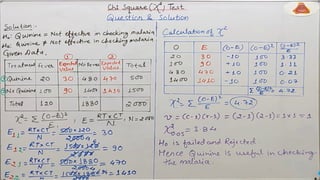 Chi Square (χ²) Test
Question & Solution
Solution.
H₀: Quinine = Not effective in checking malaria
Hₐ: Quinine ≠ Not effective in checking malaria
Given Data.
Treatment Fever Expected value No Fever Expected value Total
Quinine 20 30 480 470 500
No Quinine 100 90 1400 1410 1500
Total 120 1880 2000
χ² = Σ (O-E)²/E ; E = RT×CT/N N=2000
E₁.₁ = RT×CT/N = 500×120/2000 = 30
= 1500×120/2000 = 90
= 500×1880/2000 = 470
= 1500×1880/2000 = 1410
Calculation of χ²
O E (O-E) (O-E)² (O-E)²/E
20 30 -10 100 3.33
100 90 +10 100 1.11
480 470 +10 100 0.21
1400 1410 -10 100 0.07
Σ(O-E)²/E = 4.72
χ² = Σ (O-E)²/E = 4.72
v = (r-1)(c-1) = (2-1)(2-1) = 1×1 = 1
χ²0.05 = 3.84
H₀ is failed and Rejected
Hence Quinine is useful in checking
the malaria.